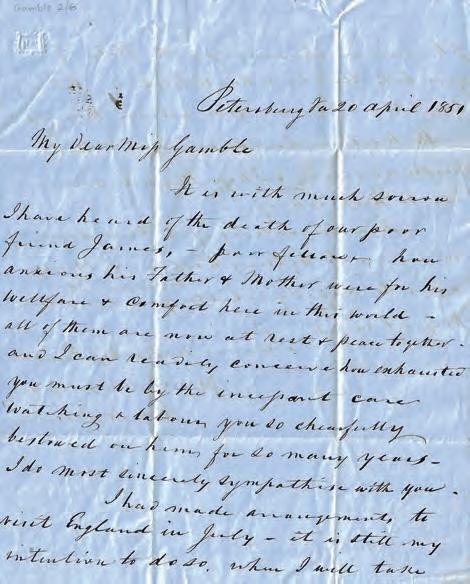 Gamble 2/6
Petersburg Va 20 April 1851
My Dear Miss Gamble
It is with much sorrow
I have heard of the death of our poor
friend James, - poor fellow how
anxious his Father & Mother were for his
wellfare & comfort here in this world -
all of them are now at rest & peace together -
and I can readily conceive how exhausted
you must be by the incessant care
watching & labour you so chearfully
bestowed on him, for so many years -
I do most sincerely sympathise with you -
I had made arrangements to
visit England in July - it is still my
intention to do so. when I will take